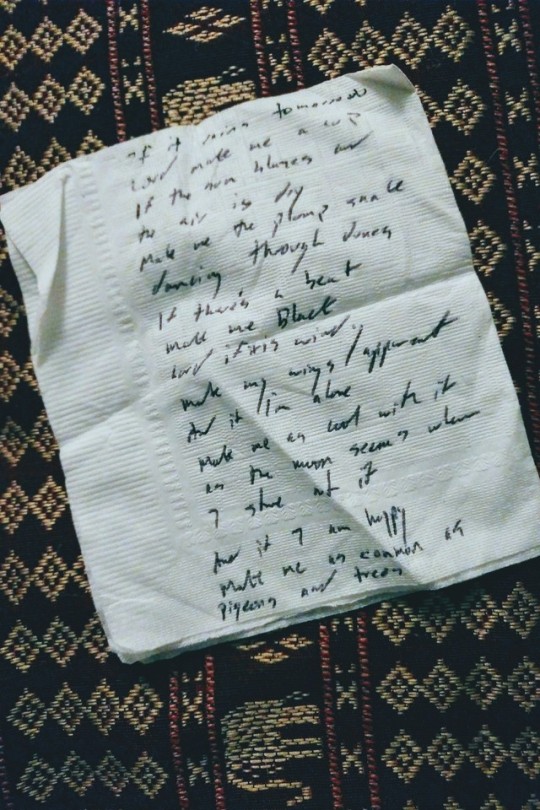 If it rains tomorrow
Lord make me a
If the sun blazes and
the air is dry
Make me the plump snake
dancing through dunes
If there's a beat
make me Black
Lord if it's windy
make my wings apparent
And if I'm alone
Make me as cool with it
as the moon seems when
I stare at it
And if I am happy
Make me as common as
pigeons and trees